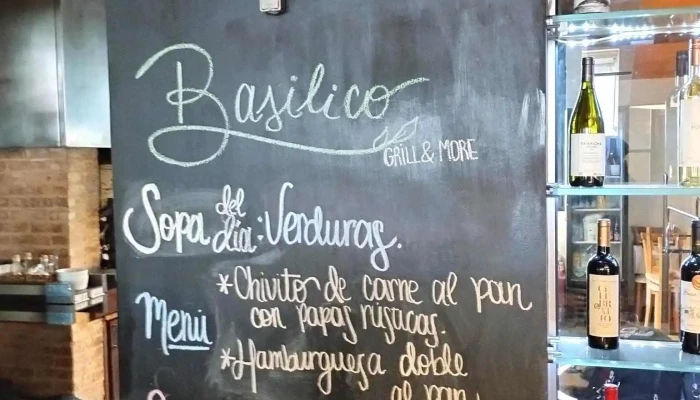 Basilico
GRILL & MORE
Sopa del día: Verduras.
Menú
*Chivito de carne al pan
con papas rusticas.
*Hamburguesa doble
al pan